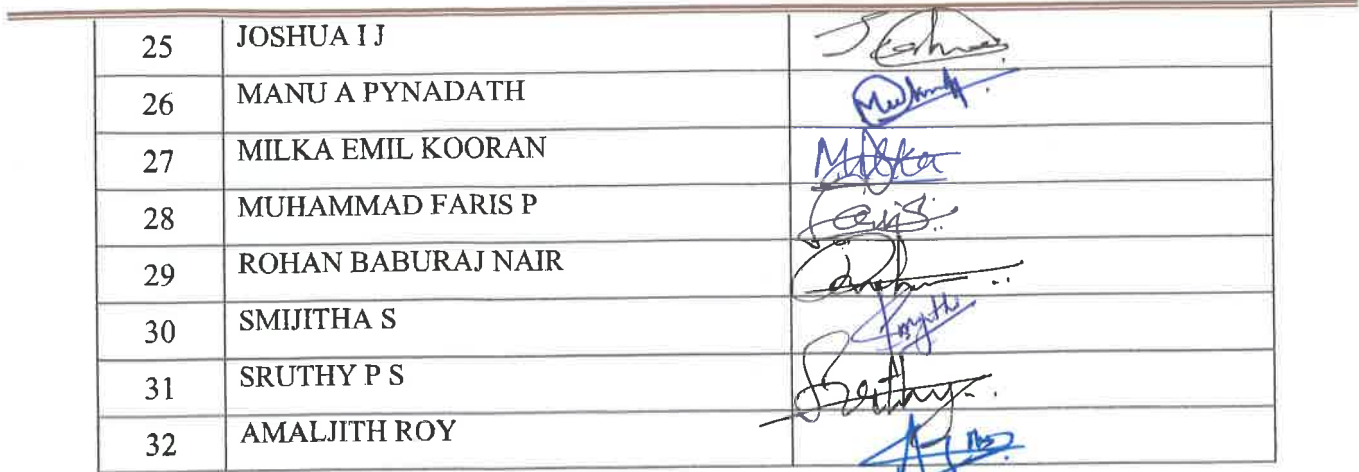 25 JOSHUA I J
26 MANU A PYNADATH
27 MILKA EMIL KOORAN Milka
28 MUHAMMAD FARIS P
29 ROHAN BABURAJ NAIR
30 SMIJITHA S
31 SRUTHY P S Sruthy
32 AMALJITH ROY